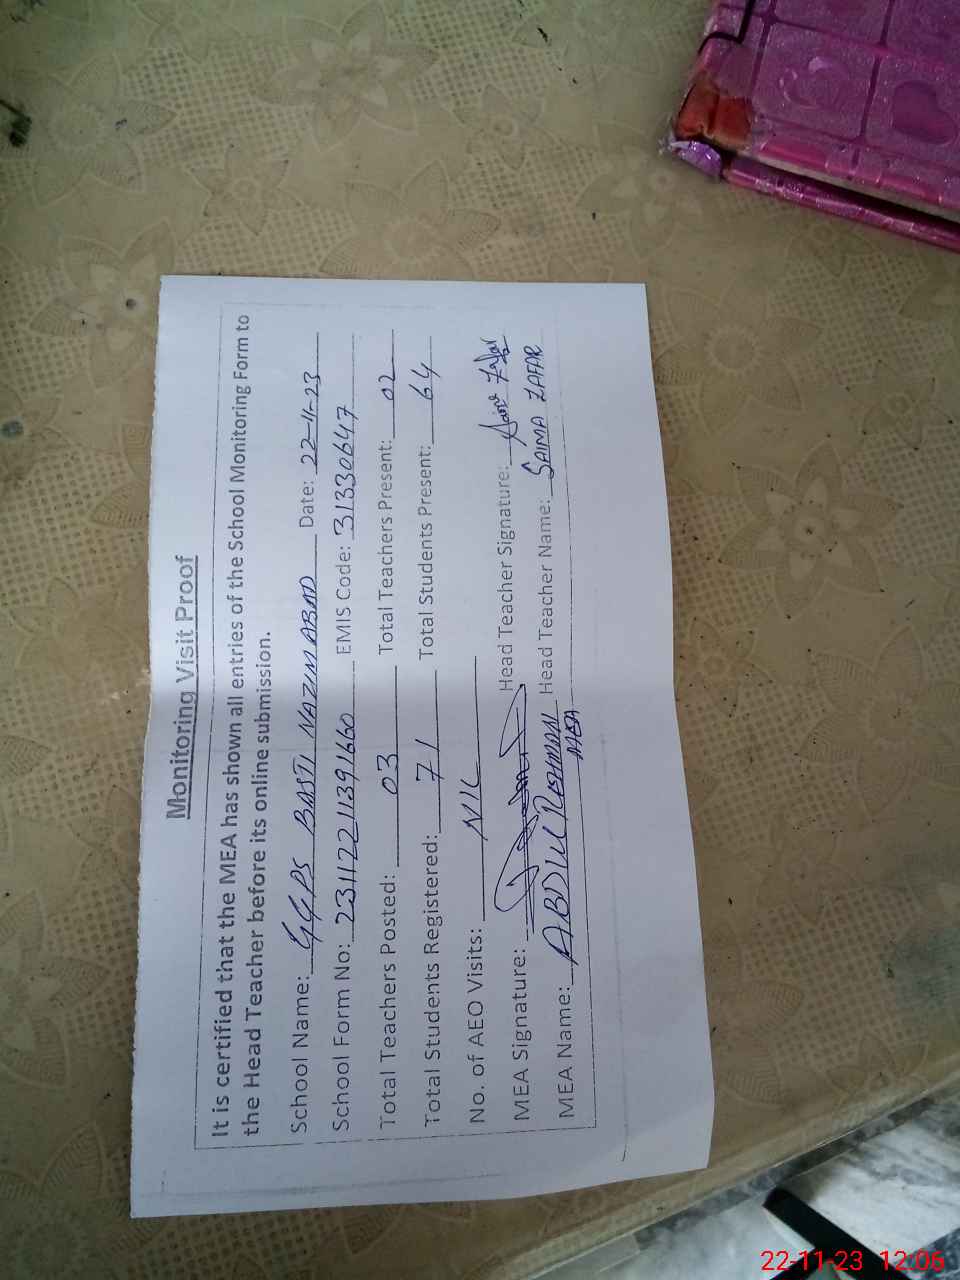 Monitoring Visit Proof
It is certified that the MEA has shown all entries of the School Monitoring Form to
the Head Teacher before its online submission.
School Name: GGPS BASTI NAZIMABAD Date: 22-11-23
School Form No: 23112211391660 EMIS Code: 31330647
Total Teachers Posted: 03 Total Teachers Present: 02
Total Students Registered: 71 Total Students Present: 64
No. of AEO Visits: NIL
MEA Signature: Head Teacher Signature: Saima Zafar
MEA Name: ABDUL REHMAN Head Teacher Name: SAIMA ZAFAR
MEA
22-11-23 12:06